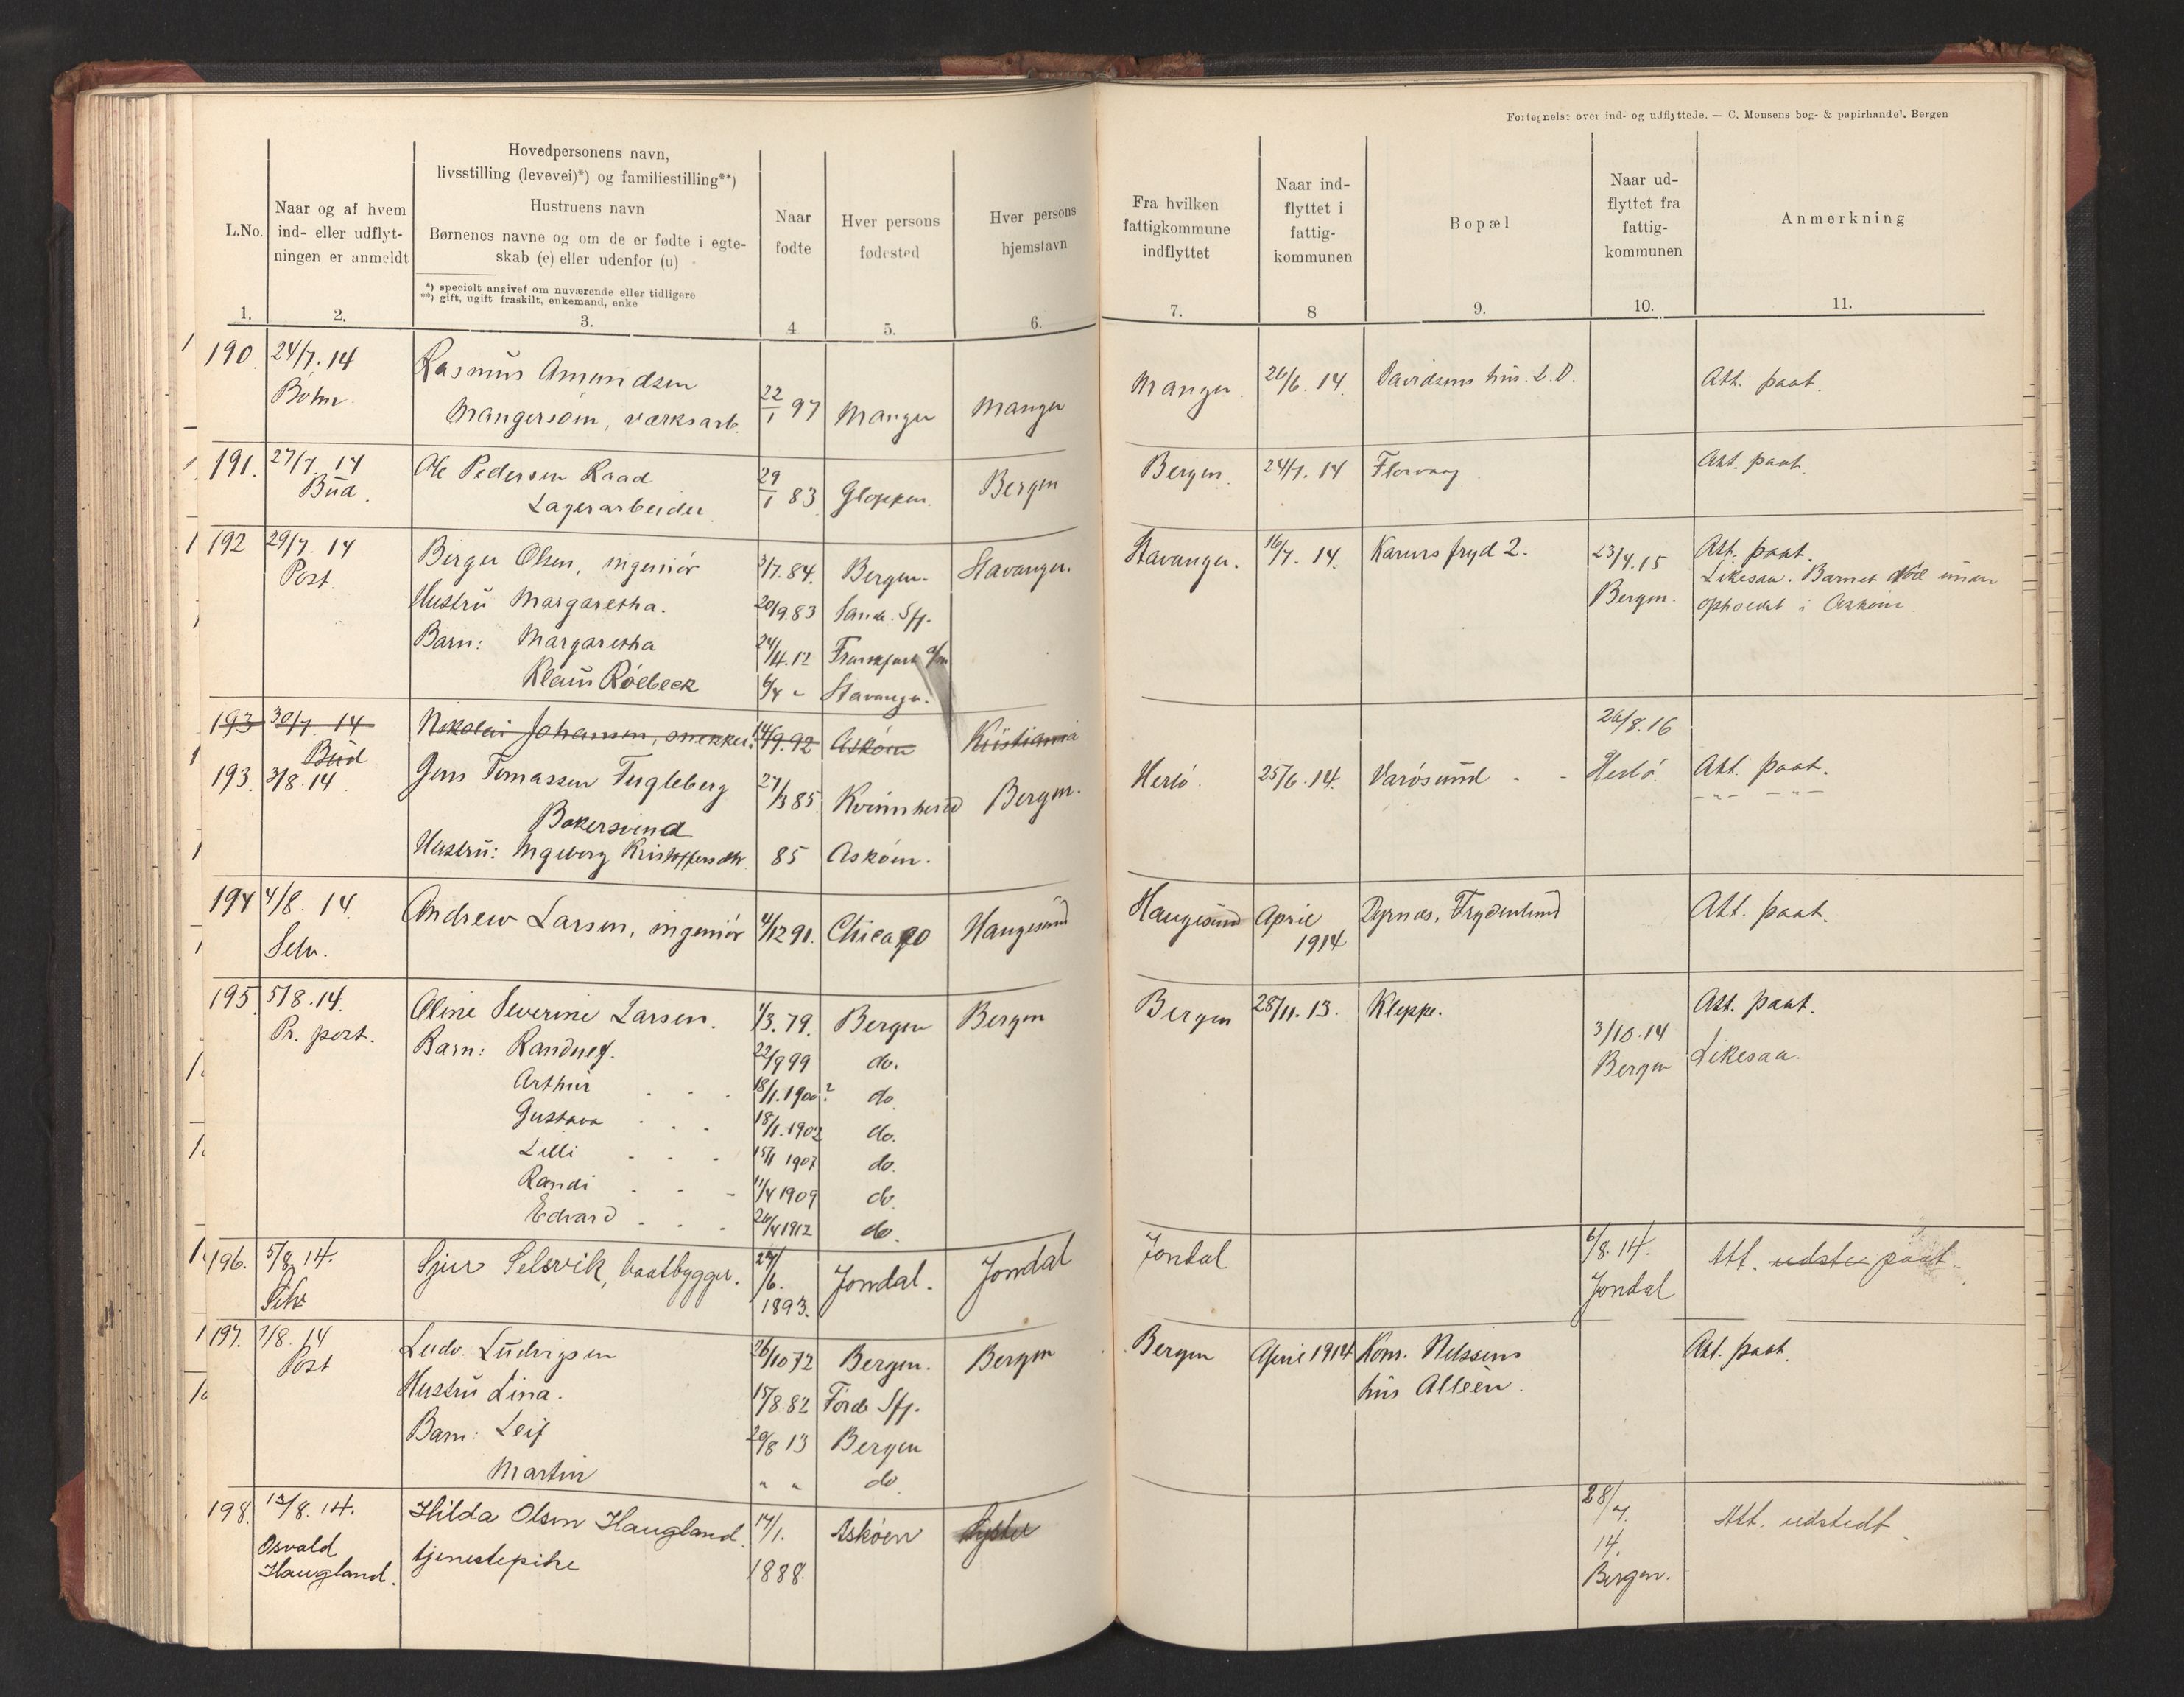 Fortegnelse over ind- og udflyttede. — C. Monsens bog- & papirhandel. Bergen
L.No.
1.
Naar og af hvem
ind- eller udflyt-
ningen er anmeldt
2.
Hovedpersonens navn,
livsstilling (levevei)*) og familiestilling**)
Hustruens navn
Børnenes navne og om de er fødte i egte-
skab (e) eller udenfor (u)
*) specielt angivet om nuværende eller tidligere
**) gift, ugift fraskilt, enkemand, enke
3.
Naar
fødte
4
Hver persons
fødested
5.
Hver persons
hjemstavn
6.
Fra hvilken
fattigkommune
indflyttet
7.
Naar ind-
flyttet i
fattig-
kommunen
8
Bopæl
9.
Naar ud-
flyttet fra
fattig-
kommunen
10.
Anmerkning
11.
190. 24/7. 14 Rasmus Amundsen
Mangersöin, værksarb. 22/1 97 Manger Manger Manger. 26/6. 14. Davidsens hus. L.D. Att. paat.
191. 27/7. 14 Ole Pedersen Raad 29/1 83 Gloppen. Bergen Bergen. 24/7. 14 Florvaag Att. paat.
Bud. Lagerarbeider
192 29/7. 14 Berger Olsen, ingeniör 3/7. 84. Bergen. Stavanger. Stavanger. 16/7. 14. Karens fryd 2. 23/4. 15 Att. paat.
Post. Hustru Margaretha. 20/9. 83 Sande. Sfj. Bergen. Likesaa. Barnet
Barn: Margaretha 24/4. 12 Frankfurt a/m opholdt i Asköin.
Klaus Röebeck 6/4 " Stavanger.
193 30/7. 14 Nikolai Johansen, snekker. 14/9. 92 Asköin Kristiania
Bud
193. 3/8. 14. Jens Tomassen Fugleberg 27/3 85 Kvinnherred Bergen. Herlö. 25/6. 14. Varösund - - 26/8. 16 Herlö. Att. paat.
Bakersvend
Hustru: Ingeborg Kristoffersdtr. 85 Asköin.
194 4/8. 14. Andrew Larsen, ingeniör 4/12 91. Chicago Haugesund Haugesund April
1914 Dyrnes, Frydenlund Att. paat.
Selv.
195. 5/8. 14. Oline Severine Larsen. 1/3. 79. Bergen Bergen Bergen 28/11. 13. Kleppe. 3/10. 14 Att. paat.
Pr. post. Barn: Randney. 22/9 99 do. Bergen Likesaa.
Arthur . . . 18/1. 1900? do.
Gustava . . . 18/1. 1902 do.
Lilli - - - 15/1 1907 do.
Randi . - - 11/4 1909 do.
Edvard - . . 26/4 1912 do.
196. 5/8. 14. Sjur Selsvik, baatbygger. 24/6.
1893. Jondal. Jondal Jondal 6/8. 14. Att. udste paat.
Selv Jondal
197. 7/8. 14 Ludv. Ludvigsen 26/10 72 Bergen. Bergen Bergen April 1914 Kons. Nilssens Att. paat.
Post Hustru Lina. 15/8. 82 Förde Sfj. hus Alleèn.
Barn: Leif 20/8 13 Bergen
Martin " " do.
198. 13/8. 14. Hilda Olsen Haugland. 17/1.
1888. Asköen 28/7.
14.
Bergen. Att. udstedt.
Osvald
Haugland. tjenestepike